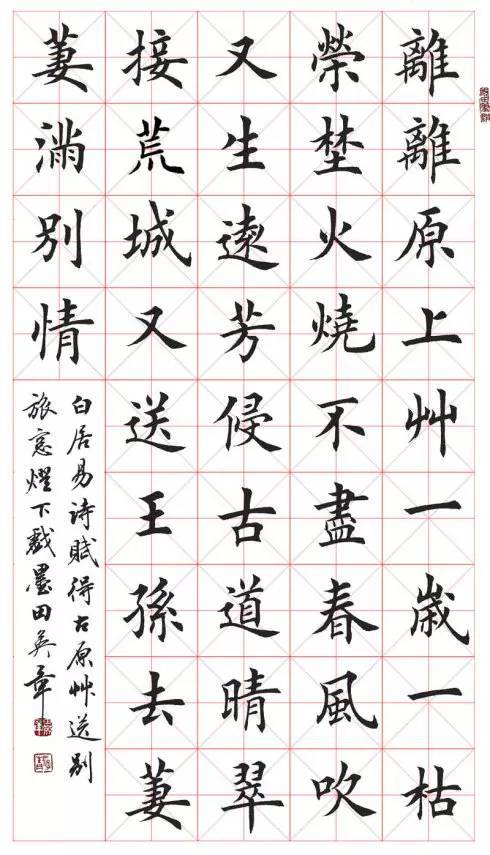 離離原上艸一歲一枯
榮埜火燒不盡春風吹
又生遠芳侵古道晴翠
接荒城又送王孫去萋
萋滿別情
白居易诗賦得古原艸送别
旅窓下戲墨田英章